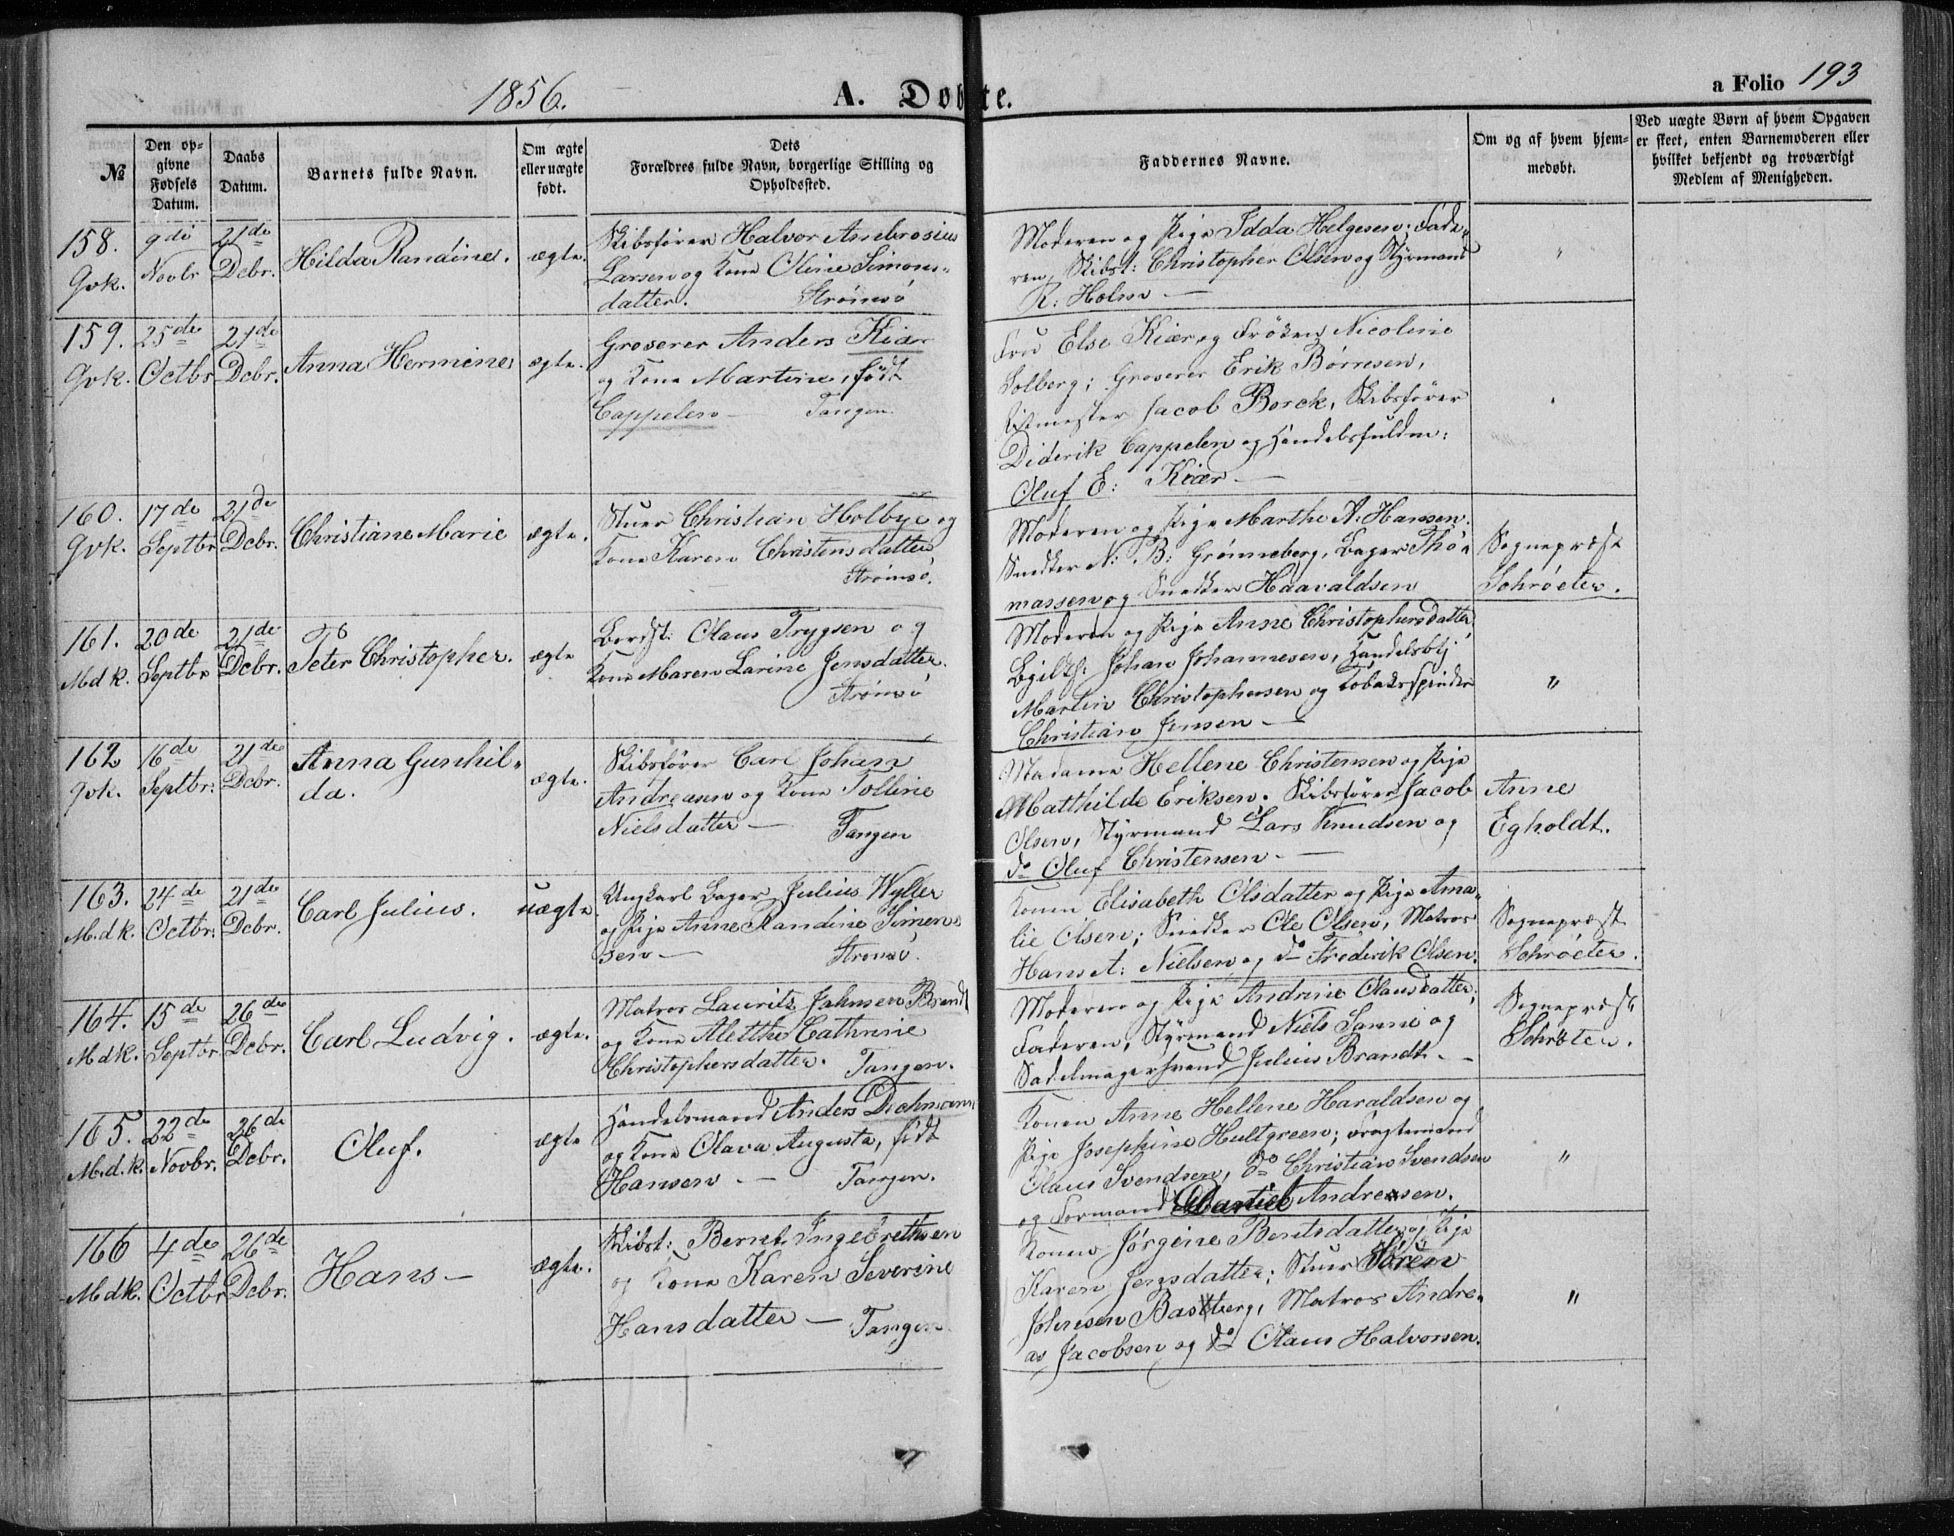 1856.
A. Døbte.
a Folio 193
№
Den op-
givne
Fødsels
Datum.
Daabs
Datum.
Barnets fulde Navn.
Om ægte
eller uægte
født.
Dets
Forældres fulde Navn, borgerlige Stilling og
Opholdssted.
Faddernes Navne.
Om og af hvem hjem-
medøbt.
Ved uægte Børn af hvem Opgaven
er skeet, enten Barnemoderen eller
hvilket bekjendt og troværdigt
Medlem af Menigheden.
158.
Qvk.
9di
Novbr
21de
Dcbr.
Hilda Randine.
ægte.
Skibsfører Halvor Ambrosius
Larsen og Kone Oline Simons-
datter. Strømsö
Moderen og Pige Idda Helgesen; Fade-
ren, Skibst: Christopher Olsen og Styrmand
R: Holm —
"
159.
Qvk.
25de
Octbr
21de
Dcbr.
Anna Hermine
ægte.
Groserer Anders Kiær
og Kone Martine, født
Cappelen — Tangen.
Fru Else Kiær og Frøken Nicoline
Solberg; Groserer Erik Børresen,
Jacob Borck, Skibsfører
Diderik Cappelen og Handelsfuldm:
Oluf E: Kiær —
160.
Qvk.
17de
Septbr
21de
Dcbr.
Christiane Marie
ægte.
Stuer Christian Holbye og
Kone Karen Christensdatter
Strømsö.
Moderen og Pige Marthe A. Hansen.
Snedker N: B: Grønneberg, Bager Tho-
massen og Snedker Haavaldsen
Sognepræst
Schröeter.
161.
Mdk.
20de
Septbr
21de
Dcbr.
Peter Christopher.
ægte
Bordst: Olaus Trygsen og
Kone Maren Larine Jensdatter.
Strømsö
Moderen og Pige Anne Christophersdatter,
Johan Johannesen, Handelsbtj
Martin Christophersen og Tobaksspinder
Christian Jensen —
"
162
Qvk.
16de
Septbr.
21de
Dcbr.
Anna Gunhil-
da.
ægte.
Skibsfører Carl Johan
Andreasen og Kone Tolline
Nielsdatter — Tangen
Madame Hellene Christensen og Pige
Matthilde Eriksen. Skibsfører Jacob
Olsen, Styrmand Lars Knudsen og
do Oluf Christensen —
Anne
Egholdt.
163.
M.dk.
24de
Octbr.
21de
Dcbr.
Carl Julius.
uægte
Ungkarl Bager Julius Wyller
og Pige Anne Randine Simen-
sen — Strømsö.
Konen Elisabeth Olsdatter og Pige Ama-
lie Olsen; Snedker Ole Olsen, Matros
Hans A: Nielsen og do Frederik Olsen.
Sognepræst
Schröeter.
164.
Mdk.
15de
Septbr
26de
Dcbr.
Carl Ludvig.
ægte.
Matros Laurits Jahnsen Brandt
og Kone Alethe Cathrine
Christophersdatter. Tangen.
Moderen og Pige Andrine Olausdatter;
Faderen, Styrmand Niels Sanne og
Sadelmagersvend Julius Brandt. —
Sognepræst
Schröter.
165.
M.d.k.
22de
Novbr.
26de
Dcbr.
Oluf.
ægte
Handelsmand Anders Dichmann
og Kone Olava Augusta, født
Hansen. — Tangen.
Konen Anne Hellene Haraldsen og
Pige Josephine Hultgreen; Fragtemand
Olaus Svendsen, do Christian Svendsen
og Formand Daniel Andresen.
"
166
Mdk.
4de
Octbr
26de
Dcbr.
Hans —
ægte.
Skibst: Bernt Ingebrethsen
og Kone Karen Severine
Hansdatter — Tangen.
Konen Jørgine Berntsdatter og Pige
Karen Jensdatter; Stuer Søren
Johnsen Bastberg, Matros Andre-
as Jacobsen og do Olaus Halvorsen.
"